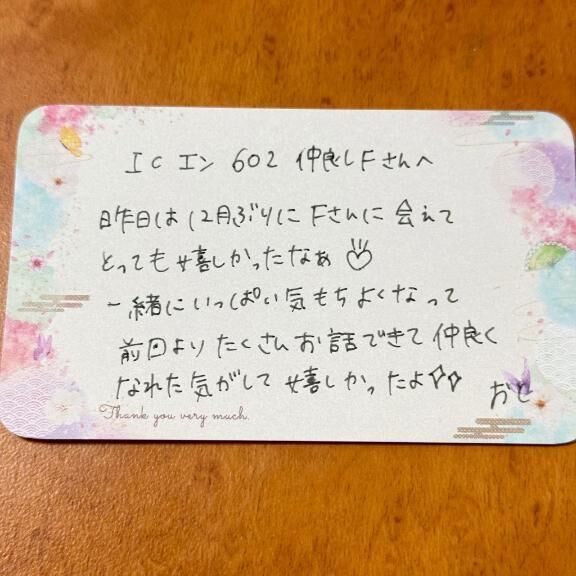 IC エン 602 仲良しFさんへ
昨日は12月ぶりに Fさんに 会えて
とっても嬉しかったなぁ♡
一緒にいっぱい気もちよくなって
前回よりたくさんお話できて仲良く
なれた気がして嬉しかったよ✧✧ おと
Thank you very much.